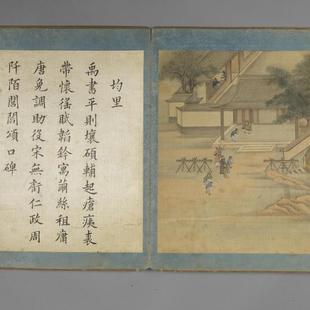 均里
禹書平則壤碩輔起瘡痍袁
帶懷徭賦韜鈴寓繭絲租庸
唐免調助役宋無衙仁政周
阡陌閭閻頌口碑